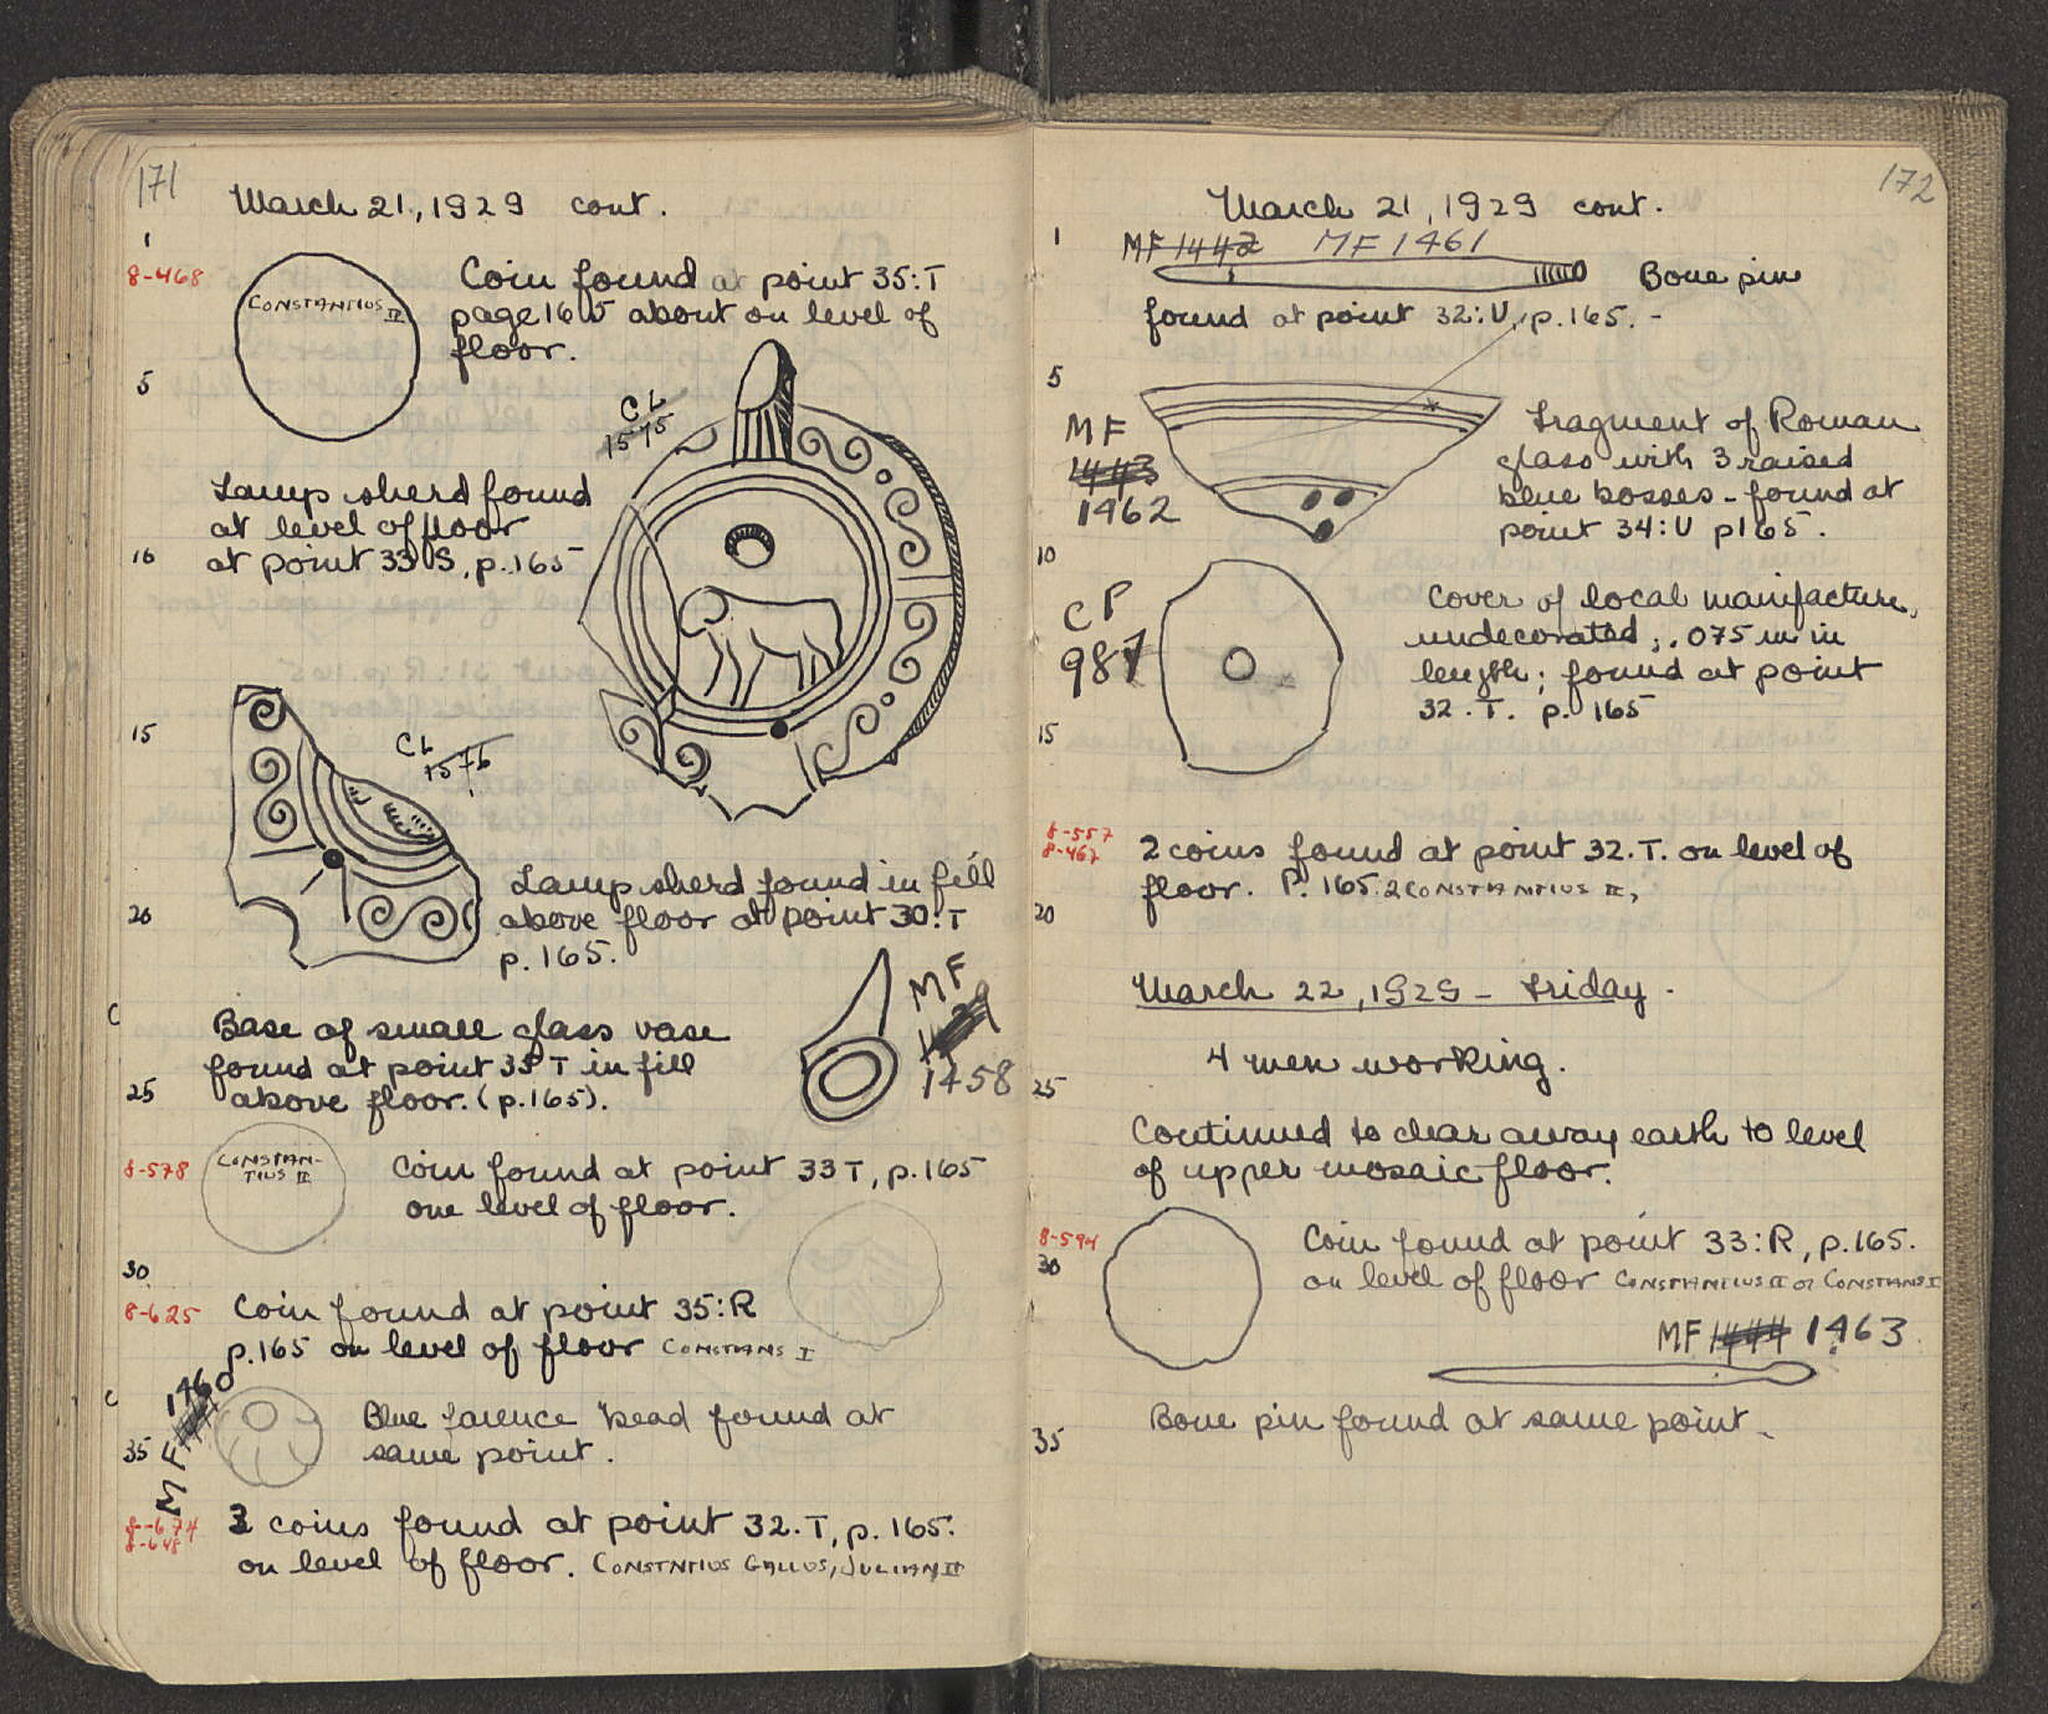 171
March 21, 1929 cont.
1
8-468
CONSTANTIUS II
Coin found at point 35:T
page 165 about on level of
floor.
5
CL
1575
Lamp sherd found
at level of floor
10
at point 33 S, p.165
15
CL
1576
Lamp sherd found in fill
20
above floor at point 30:T
p. 165.
C
Base of small glass vase
found at point 35 T in fill
25
above floor. (p.165).
MF
1458
8-578
CONSTAN-
TIUS II
Coin found at point 33 T, p.165
one level of floor.
30
8-625
Coin found at point 35:R
p.165 on level of floor CONSTANS I
C
MF 1460
Blue faience bead found at
35
same point.
8-674
8-648
2 coins found at point 32.T, p. 165.
on level of floor. CONSTNTIUS GALLUS, JULIAN II
172
March 21, 1929 cont.
1
MF 1442 MF 1461
Bone pin
found at point 32:U, p.165. -
5
MF
1443
1462
Fragment of Roman
glass with 3 raised
blue bosses - found at
point 34:U p165.
10
CP
987
Cover of local manifacture,
undecorated; .075 m in
length; found at point
32.T. p. 165
15
8-557
8-467
2 coins found at point 32.T. on level of
floor. P. 165. 2 CONSTANTIUS II,
20
March 22, 1929 - Friday.
4 men working.
25
Continued to clear away earth to level
of upper mosaic floor.
8-594
30
Coin found at point 33:R, p.165.
on level of floor CONSTANTIUS II or CONSTANS I
MF 1444 1463
Bone pin found at same point.
35